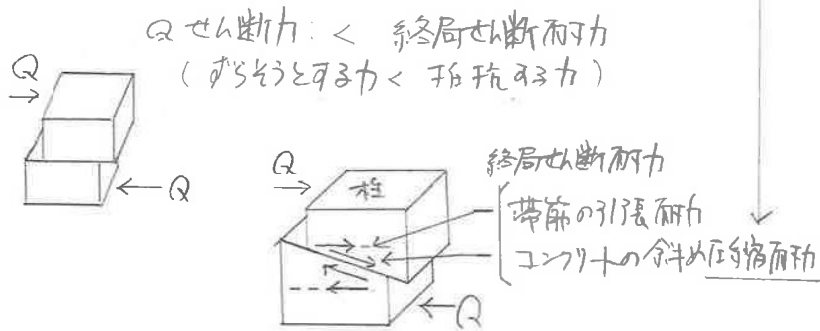 Q せん断力: < 終局せん断耐力
(ずらそうとする力 < 抵抗する力)
Q
Q
Q
柱
終局せん断耐力
帯筋の引張耐力
コンクリートの斜め圧縮耐力
Q